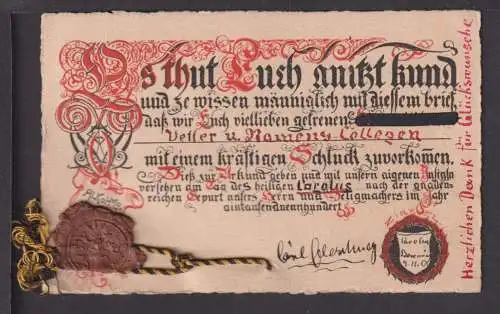 Es thut Euch anitzt kund
und ze wissen männiglich mit diessem brief
daß wir Euch viellieben getreuens
Vetter u. Namens-Collegen
mit einem kräftigen Schluck zuvorkomen.
Dieß zur Urkund geben und mit unsern eigenen Insigln
versehen am Tag des heiligen Carolus nach der gnaden-
reichen Gepurt unsers Hern und Seligmachers im Jahr
aintausendneunhundert
Carl
Herzlichen Dank für Glückswünsche